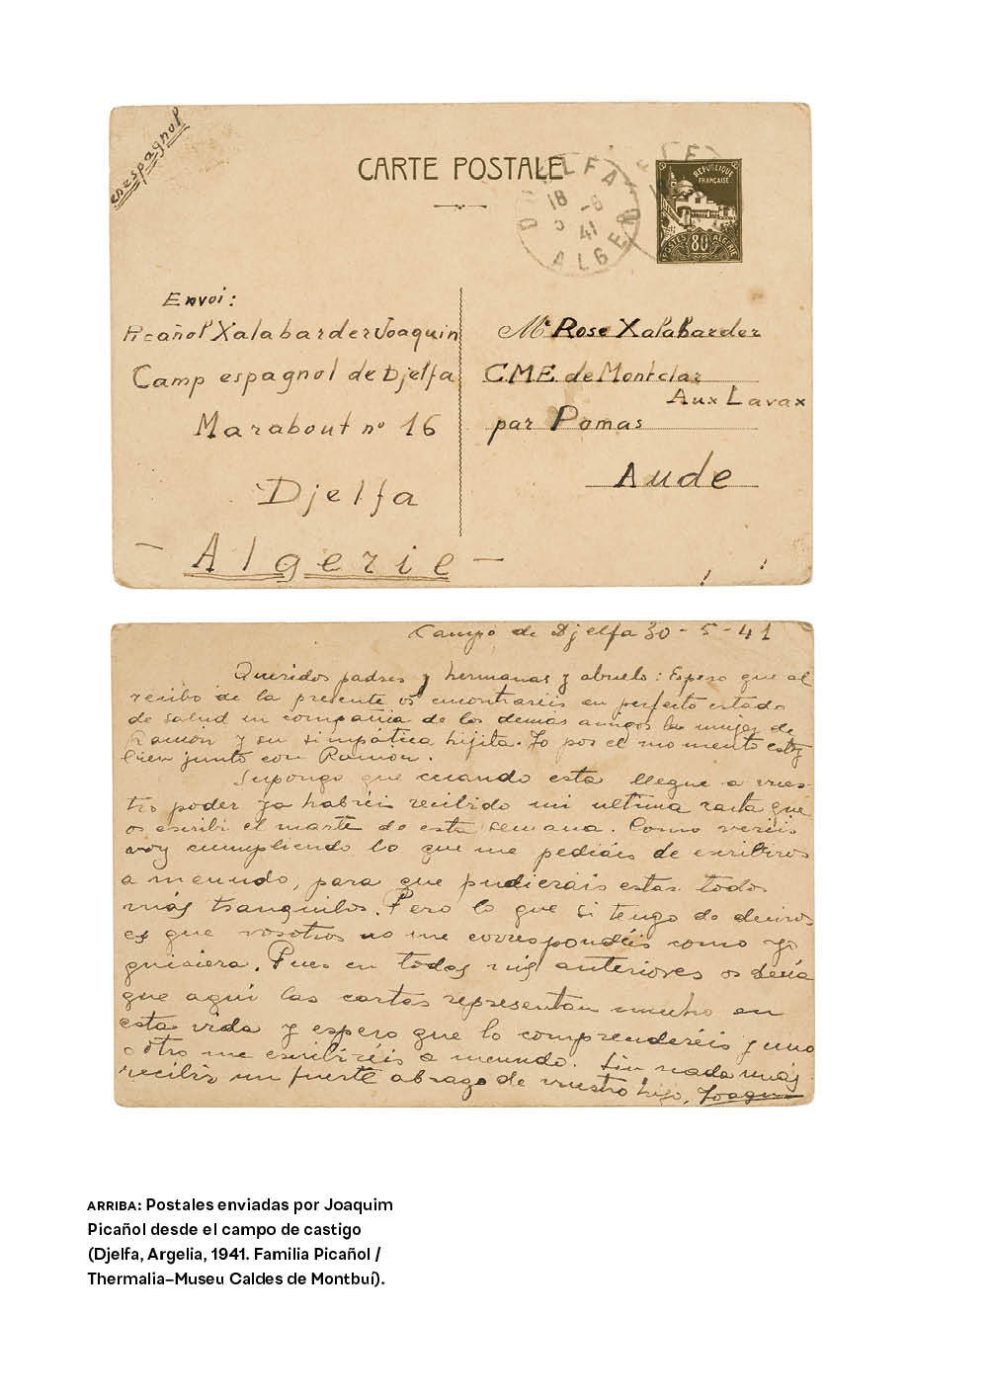 en espagnol
CARTE POSTALE
DJELFA
18 -6
41
ALGER
REPUBLIQUE
FRANÇAISE
POSTES 80 ALGERIE
Envoi:
Picañol Xalabarder Joaquin
Camp espagnol de Djelfa
Marabout nº 16
Djelfa
- Algerie -
Rose Xalabarder
C.M.E. de Montclar
Aux Lavax
par Pomas
Aude
Campo de Djelfa 30-5-41
Queridos padres y hermanas y abuelo: Espero que al
recibo de la presente os encontrareis en perfecto estado
de salud en compañia de los demas amigos la mujer de
Ramón y su simpática hijita. Yo por el momento estoy
bien junto con Ramón.
Supongo que cuando esta llegue a vues-
tro poder ya habreis recibido mi ultima carta que
os escribi el marte de esta semana. Como vereis
voy cumpliendo lo que me pediais de escribiros
a menudo, para que pudierais estar todos
más tranquilos. Pero lo que si tengo de deciros
es que vosotros no me correspondéis como yo
quisiera. Pues en todas mis anteriores os decia
que aquí las cartas representan mucho en
esta vida y espero que lo comprendereis y uno
otro me escribiréis a menudo. Sin nada más
recibir un fuerte abrazo de vuestro hijo, Joaquin
ARRIBA: Postales enviadas por Joaquim
Picañol desde el campo de castigo
(Djelfa, Argelia, 1941. Familia Picañol /
Thermalia–Museu Caldes de Montbuí).